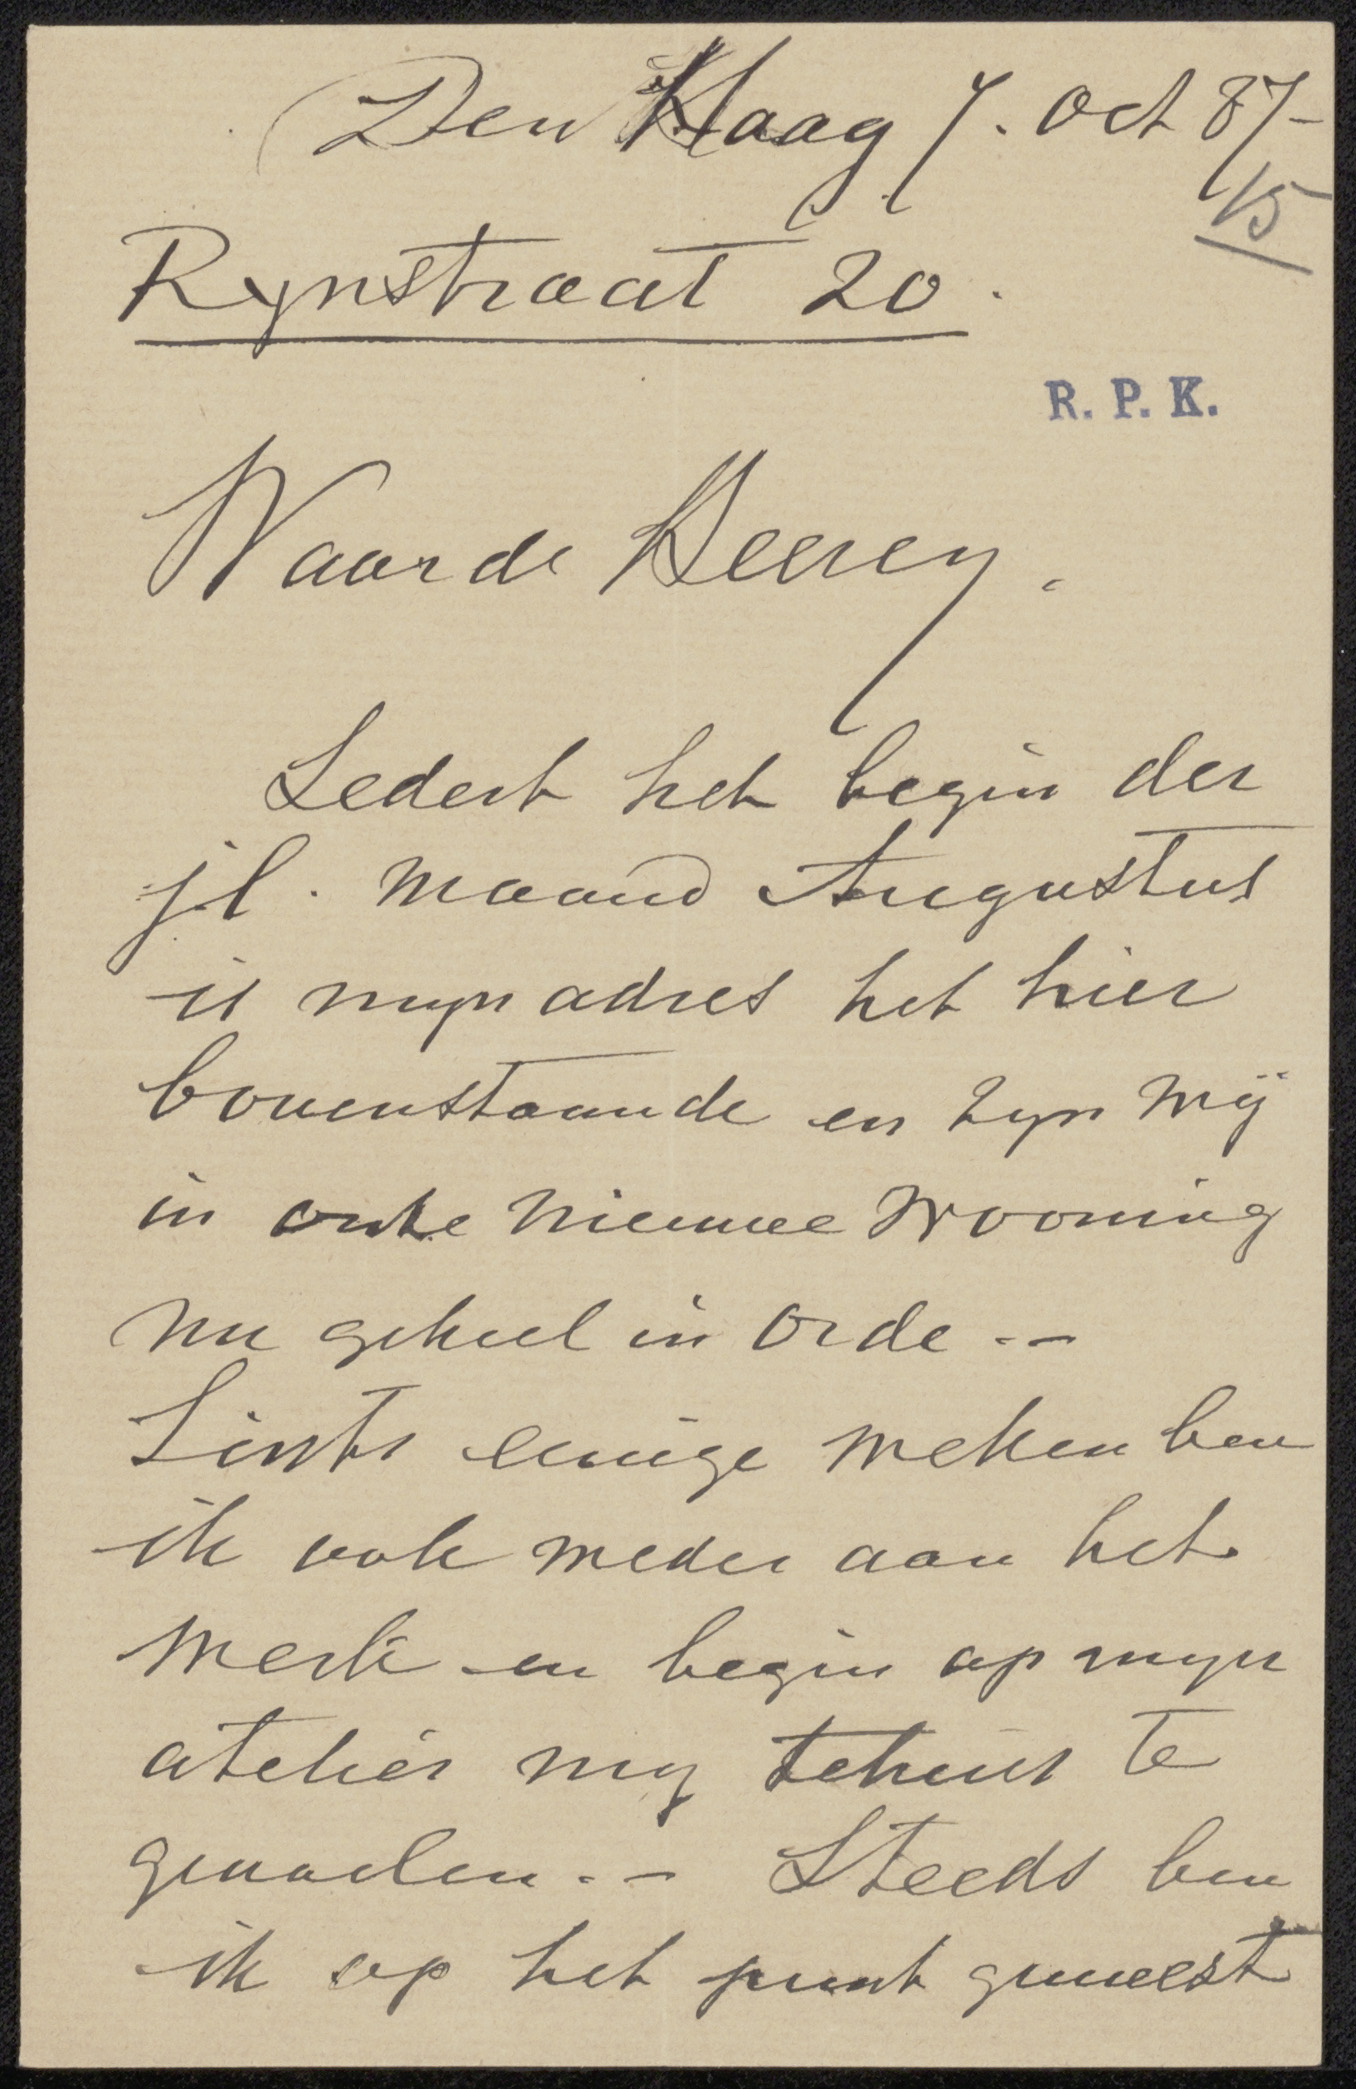 Den Haag 7. Oct 87-
15
Rynstraat 20.
R. P. K.
Waarde Heeren.
Sedert het begin der
jl. maand Augustus
is myn adres het hier
bovenstaande en zyn wij
in onze nieuwe wooning
nu geheel in orde.-
Sints eenige weken ben
ik ook weder aan het
werk en begin op myn
atelier my tehuis te
gevoelen.- Steeds ben
ik op het punt geweest